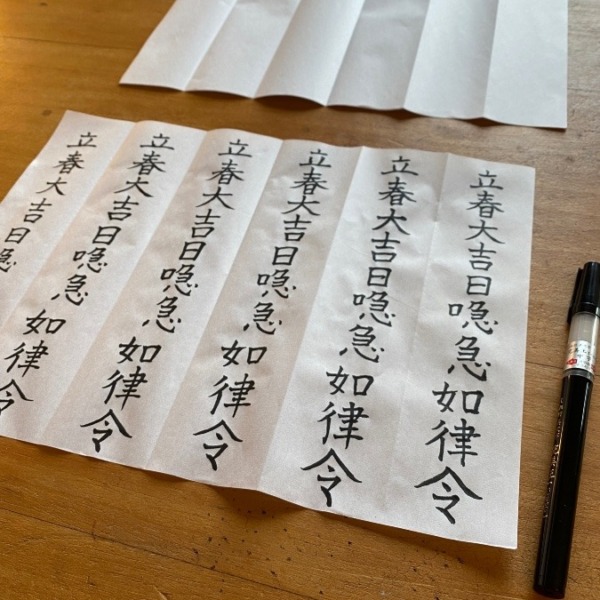 立春大吉日喼急如律令
立春大吉日喼急如律令
立春大吉日喼急如律令
立春大吉日喼急如律令
立春大吉日喼急如律令
立春大吉日如律令